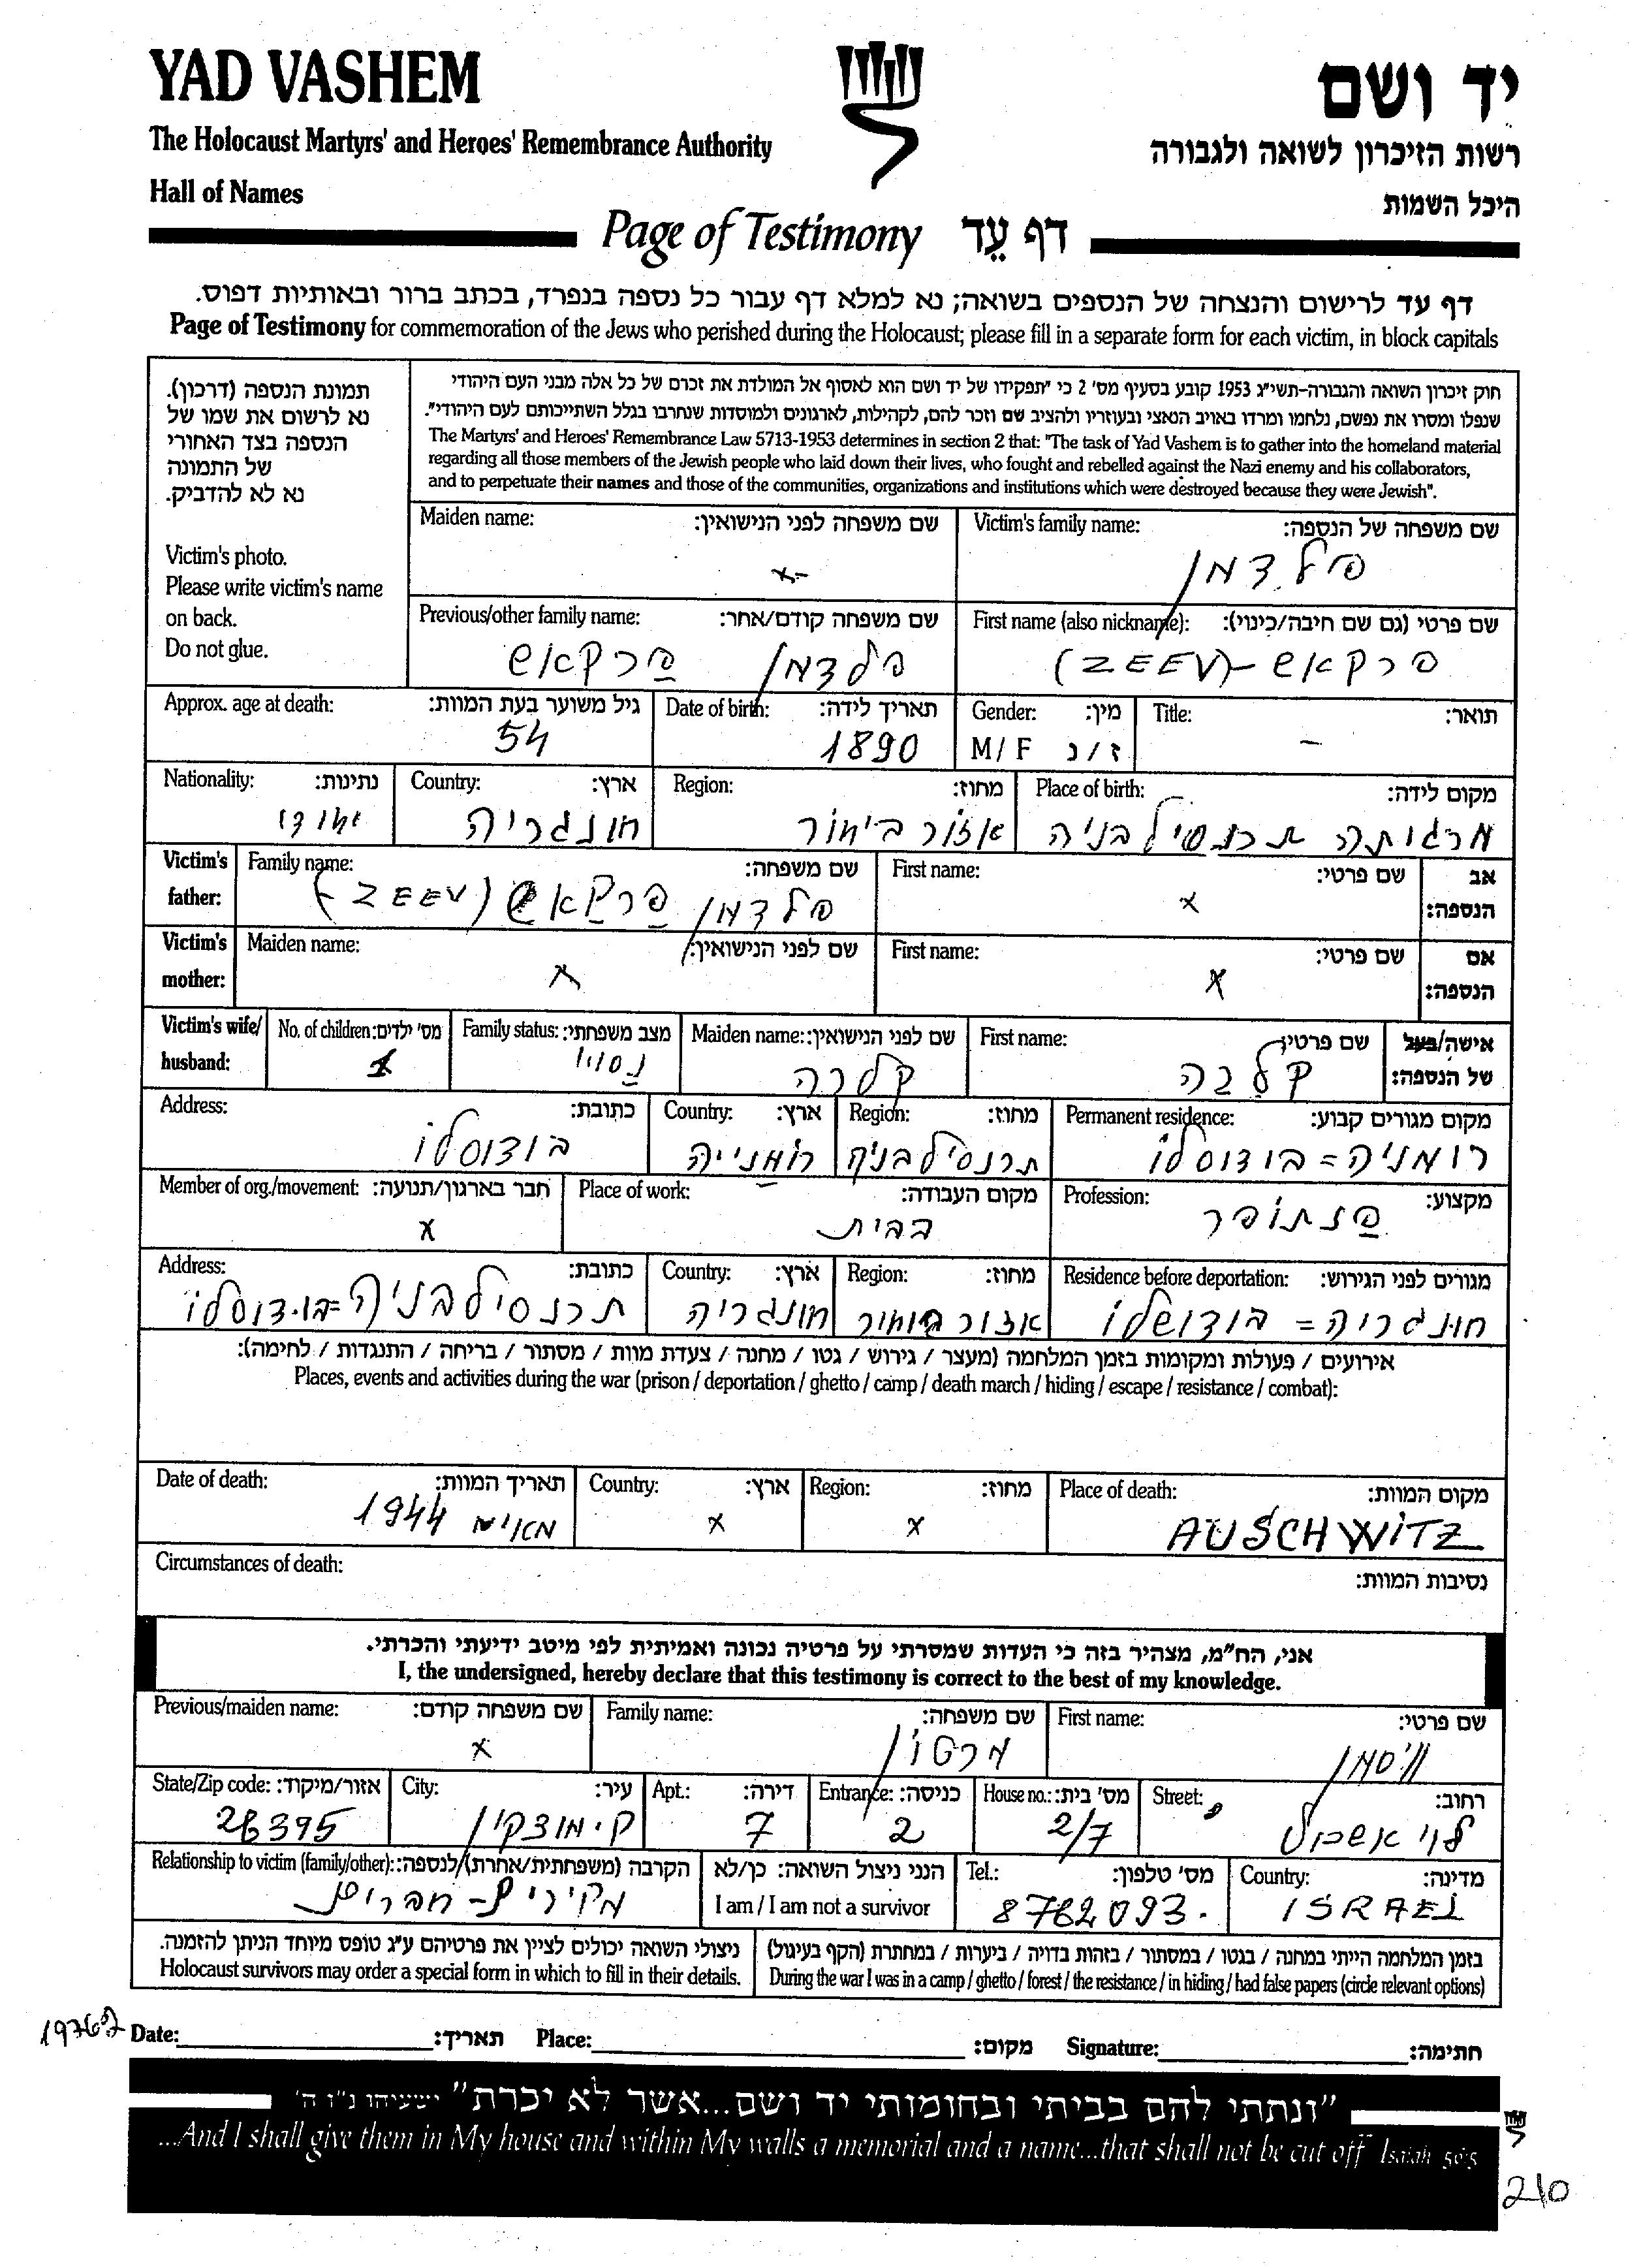 YAD VASHEM
יד ושם
The Holocaust Martyrs' and Heroes' Remembrance Authority
רשות הזיכרון לשואה ולגבורה
Hall of Names
היכל השמות
Page of Testimony דף עֵד
דף עד לרישום והנצחה של הנספים בשואה; נא למלא דף עבור כל נספה בנפרד, בכתב ברור ובאותיות דפוס.
Page of Testimony for commemoration of the Jews who perished during the Holocaust; please fill in a separate form for each victim, in block capitals
תמונת הנספה (דרכון).
נא לרשום את שמו של
הנספה בצד האחורי
של התמונה
נא לא להדביק.
Victim's photo.
Please write victim's name
on back.
Do not glue.
חוק זיכרון השואה והגבורה-תשי"ג 1953 קובע בסעיף מס' 2 כי "תפקידו של יד ושם הוא לאסוף אל המולדת את זכרם של כל אלה מבני העם היהודי
שנפלו ומסרו את נפשם, נלחמו ומרדו באויב הנאצי ובעוזריו ולהציב שם וזכר להם, לקהילות, לארגונים ולמוסדות שנחרבו בגלל השתייכותם לעם היהודי".
The Martyrs' and Heroes' Remembrance Law 5713-1953 determines in section 2 that: "The task of Yad Vashem is to gather into the homeland material
regarding all those members of the Jewish people who laid down their lives, who fought and rebelled against the Nazi enemy and his collaborators,
and to perpetuate their names and those of the communities, organizations and institutions which were destroyed because they were Jewish".
Victim's family name: שם משפחה של הנספה:
פלדמן
Maiden name: שם משפחה לפני הנישואין:
x-
First name (also nickname): שם פרטי (גם שם חיבה/כינוי):
פרקאש-(ZEEV)
Previous/other family name: שם משפחה קודם/אחר:
פלדמן פרקאש
Title: תואר:
-
Gender: מין:
M/ F ז/נ
Date of birth: תאריך לידה:
1890
Approx. age at death: גיל משוער בעת המוות:
54
Place of birth: מקום לידה:
מרגותה תרנסילבניה
Region: מחוז:
אזור ביהור
Country: ארץ:
הונגריה
Nationality: נתינות:
יהודי
Victim's father:
אב הנספה:
First name: שם פרטי:
x
Family name: שם משפחה:
פלדמן פרקאש (ZEEV)
Victim's mother:
אם הנספה:
First name: שם פרטי:
x
Maiden name: שם לפני הנישואין:
x
Victim's wife/ husband:
אישה/בעל של הנספה:
First name: שם פרטי:
קלרה
Maiden name: שם לפני הנישואין:
קלרה
Family status: מצב משפחתי:
נסוי
No. of children: מס' ילדים:
1
Permanent residence: מקום מגורים קבוע:
רומניה = בודוסלו
Region: מחוז:
תרנסילבניה
Country: ארץ:
רומנייה
Address: כתובת:
בודוסלו
Profession: מקצוע:
Place of work: מקום העבודה:
בבית
Member of org./movement: חבר בארגון/תנועה:
x
Residence before deportation: מגורים לפני הגירוש:
הונגריה = בודושלו
Region: מחוז:
אזור ביהור
Country: ארץ:
הונגריה
Address: כתובת:
תרנסילבניה=בודוסלו
אירועים / פעולות ומקומות בזמן המלחמה (מעצר / גירוש / גטו / מחנה / צעדת מוות / מסתור / בריחה / התנגדות / לחימה):
Places, events and activities during the war (prison / deportation / ghetto / camp / death march / hiding / escape / resistance / combat):
Place of death: מקום המוות:
AUSCHWITZ
Region: מחוז:
x
Country: ארץ:
x
Date of death: תאריך המוות:
1944
Circumstances of death: נסיבות המוות:
אני, הח"מ, מצהיר בזה כי העדות שמסרתי על פרטיה נכונה ואמיתית לפי מיטב ידיעתי והכרתי.
I, the undersigned, hereby declare that this testimony is correct to the best of my knowledge.
First name: שם פרטי:
וויסמן
Family name: שם משפחה:
מרטון
Previous/maiden name: שם משפחה קודם:
x
Street: רחוב:
לוי אשכול
House no.: מס' בית:
2/7
Entrance: כניסה:
2
Apt.: דירה:
7
City: עיר:
ק.מוצקין
State/Zip code: אזור/מיקוד:
26395
Country: מדינה:
ISRAEL
Tel.: מס' טלפון:
8762093.
הנני ניצול השואה: כן/לא
I am / I am not a survivor
Relationship to victim (family/other): הקרבה (משפחתית/אחרת) לנספה:
מקירים-חברים
בזמן המלחמה הייתי במחנה / בגטו / במסתור / בזהות בדויה / ביערות / במחתרת (הקף בעיגול)
During the war I was in a camp / ghetto / forest / the resistance / in hiding / had false papers (circle relevant options)
ניצולי השואה יכולים לציין את פרטיהם ע"ג טופס מיוחד הניתן להזמנה.
Holocaust survivors may order a special form in which to fill in their details.
Date: תאריך: Place: מקום: Signature: חתימה:
"ונתתי להם בביתי ובחומותי יד ושם...אשר לא יכרת" ישעיהו נ"ו ה'
...And I shall give them in My house and within My walls a memorial and a name...that shall not be cut off Isaiah 56:5
210